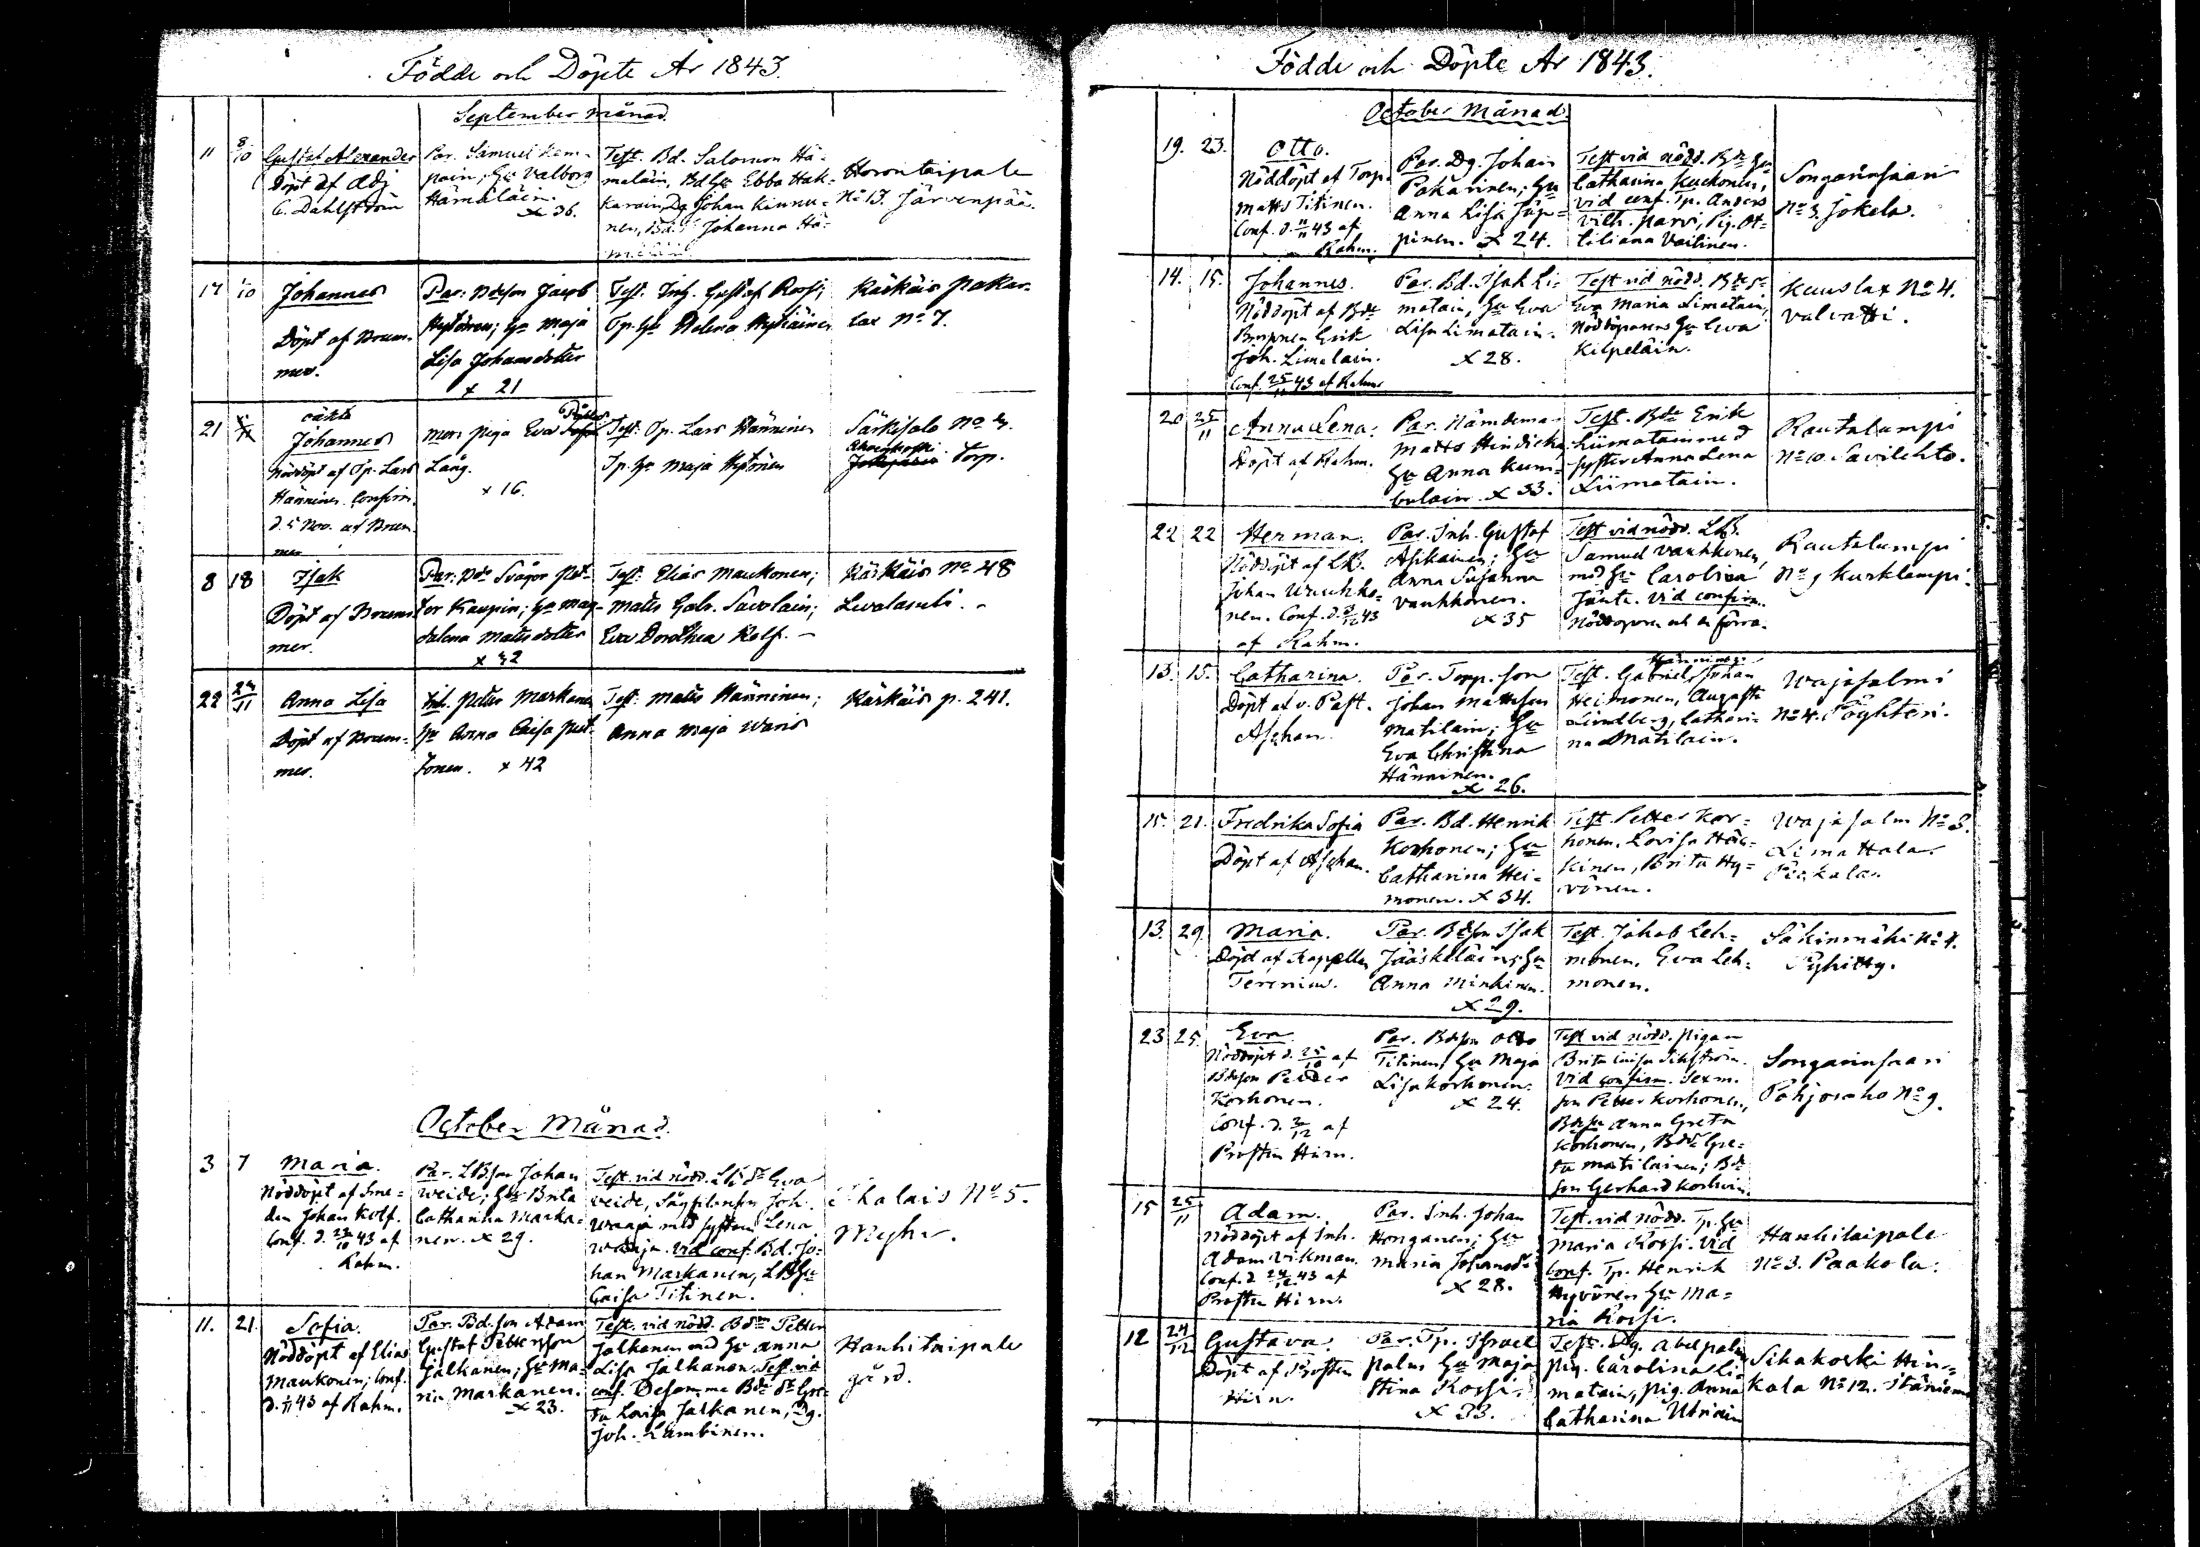 Födde och Döpte År 1843.
September månad.
11 8/10 Gustaf Alexander
Döpt af Adj
C. Dahlström
Par. Samuel Kem-
pain; Hu Valborg
Hämäläin.
x 36.
Test. Bd. Salomon Hä-
mäläin, Bd Hu Ebba Hak-
karain, Dg Johan Kinnu-
nen, Bd. Johanna Hä-
Horontaipale
No 13. Järvenpää.
17 1/10 Johannes
Döpt af Brum-
mer.
Par: Bdeson Jacob
Hytönen; Hu Maja
Lisa Johansdotter
x 21
Test. Inh. Gustaf Rossi;
Tp. Hu Helena Hytöinen
Käskäis pakar-
lax No 7.
21
oäkta
Johannes
Nöddöpt af Tp. Lars
Hänninen. Confirm.
d. 5 Nov. af Brum-
mer
Mor: piga Eva
Lång.
x 16.
Test: Tp. Lars Hänninen
Tp. Hu Maja Hytönen
Särkisalo No
Torp.
8 18 Isak
Döpt af Brum-
mer.
Par: Bds Svågor Pet-
ter Kaupin; Hu Mag-
dalena Matsdotter
Test: Elias Maukonen;
Matts Gabr. Savolain;
Eva Dorothea Rolf. –
Käskäis No 48
22 24/11 Anna Lisa
Döpt af Brum-
mer.
Inh. Petter Markanen
Hu Anna Caisa Pust-
Jonen. x 42
Test: Matts Hänninen;
Anna Maja Waris
Käskäis p. 241.
October Månad.
3 7 Maria.
Nöddöpt af Sme-
den Johan Rolf.
Conf. d. 22/10 43 af
Rahm.
Par. LBson Johan
Weide; Hu Brita
Catharina Marka-
nen. x 29.
Test. vid nödd. LBdr Eva
Weide, Joh.
Waaja med systern Lena
Waaja. vid conf. Bd. Jo-
han Markanen, LBHu
Caisa Titinen.
No 5.
11. 21. Sofia.
Nöddöpt af Elias
Maukonen; Conf.
d. 1/11 43 af Rahm.
Par. Bd. son Adam
Gustaf Pettersson
Jalkanen; Hu Ma-
ria Markanen.
x 23.
Test. vid nödd. Bdn Petter
Jalkanen med Hu Anna
Lisa Jalkanen. Test. vid
conf. Desamma Bde dr Gre-
ta Lovisa Jalkanen, Dg.
Joh. Lambinen.
Hanhitaipale
gård.
Födde och Döpte År 1843.
October Månad.
19. 23. Otto.
Nöddöpt af Torp.
Matts Titinen.
Conf. d. 11/11 43 af
Rahm.
Par. Dg. Johan
Pakarinen; Hu
Anna Lisa Jäp-
pinen. x 24.
Test vid nödd. Bde Hu
Catharina Kuckonen,
vid conf. Tp. Anders
Vilh. Parvi, Pig. Ot-
tiliana Vaitinen.
Songarinsaari
No 3. Jokela.
14. 15. Johannes.
Nöddöpt af Bde
Brorsonen Erik
Joh. Limatain.
Conf. 25/11 43 af Rahm
Par. Bd. Isak Li-
matain, Hu Eva
Lisa Limatain.
x 28.
Test vid nödd. Bde Dr
Eva Maria Limatain,
Nöddöparens Hu Eva
Kilpeläin.
Kuuslax No 4.
Valvatti.
20 25/11 Anna Lena.
Döpt af Rahm.
Par. Nämdeman
Matts Hindicka
Hu Anna Kum-
bulain. x 33.
Test. Bde Erik
Liimatain med
syster Anna Lena
Liimatain.
Rautalampi
No 10. Savilehto.
22 22 Herman.
Nöddöpt af LB.
Johan Vauhko-
nen. Conf. d. 43
af Rahm.
Par. Inh. Gustaf
Asikainen; Hu
Anna Susanna
Vauhkonen.
x 35
Test vid nödd. LB.
Samuel Vauhkonen,
med Hu Carolina
Jänt. Vid confirm.
Nöddöparen och de förra.
Rautalampi
No 9 Kurklampi.
13. 15. Catharina.
Döpt af v. Past.
Aschan.
Par. Torp. son
Johan Mattsson
Matilain; Hu
Eva Christina
Hänninen.
x 26.
Hänninen
Test. Gabriel, Johan
Heimonen, Augusta
Lindberg, Cathari-
na Matilain.
Wajasalmi
No 4. Pöyhteri.
15. 21. Fredrika Sofia
Döpt af Aschan.
Par. Bd. Henrik
Korhonen; Hu
Catharina Hei-
monen. x 34.
Test. Petter Kor-
honen, Lovisa Häk-
kinen, Brita Hy-
vönen.
Wajasalm No 3.
Limattala
13. 29. Maria.
Döpt af Kappellan
Terenius.
Par. Bdson Isak
Jääskeläin; Hu
Anna Minkinen.
x 29.
Test. Jakob Leh-
monen. Eva Leh-
monen.
Säkinmäki No 4.
Pyhitty.
23 25 Eva
Nöddöpt d. 25/10 af
Bdeson Petter
Korhonen.
Conf. d. 3/12 af
Prosten Hirn.
Par. Bdeson Otto
Titinen, Hu Maja
Lisa Korhonen.
x 24.
Test vid nödd. pigan
Brita Caisa
Vid confirm. Sexm.
son Petter Korhonen,
Bdeson Hu Anna Greta
Korhonen, Bde Dr Gre-
ta Matilainen; Bde
son Gerhard Korhoin.
Songarinsaari
Pohjosaho No 9.
15 25/11 Adam.
Nöddöpt af Inh.
Adam Wikman
Conf. d 24/12 43 af
Prosten Hirn.
Par. Inh. Johan
Honganen; Hu
Maria Johansdr
x 28.
Test. vid nödd. Tp. Hu
Maria Rossi. Vid
Conf. Tp. Henrik
Hyvönen Hu Ma-
ria Rossi.
Hanhitaipale
No 3. Paakola.
12 24/12 Gustava.
Döpt af Prosten
Hirn.
Par. Tp. Israel
Palm Hu Maja
Stina Rossi.
x 33.
Test. Dg. Abel Palm
Pig. Carolina Li-
matain, Pig. Anna
Catharina Utriain
Sikakoski Hin-
kala No 12. Itäniemi